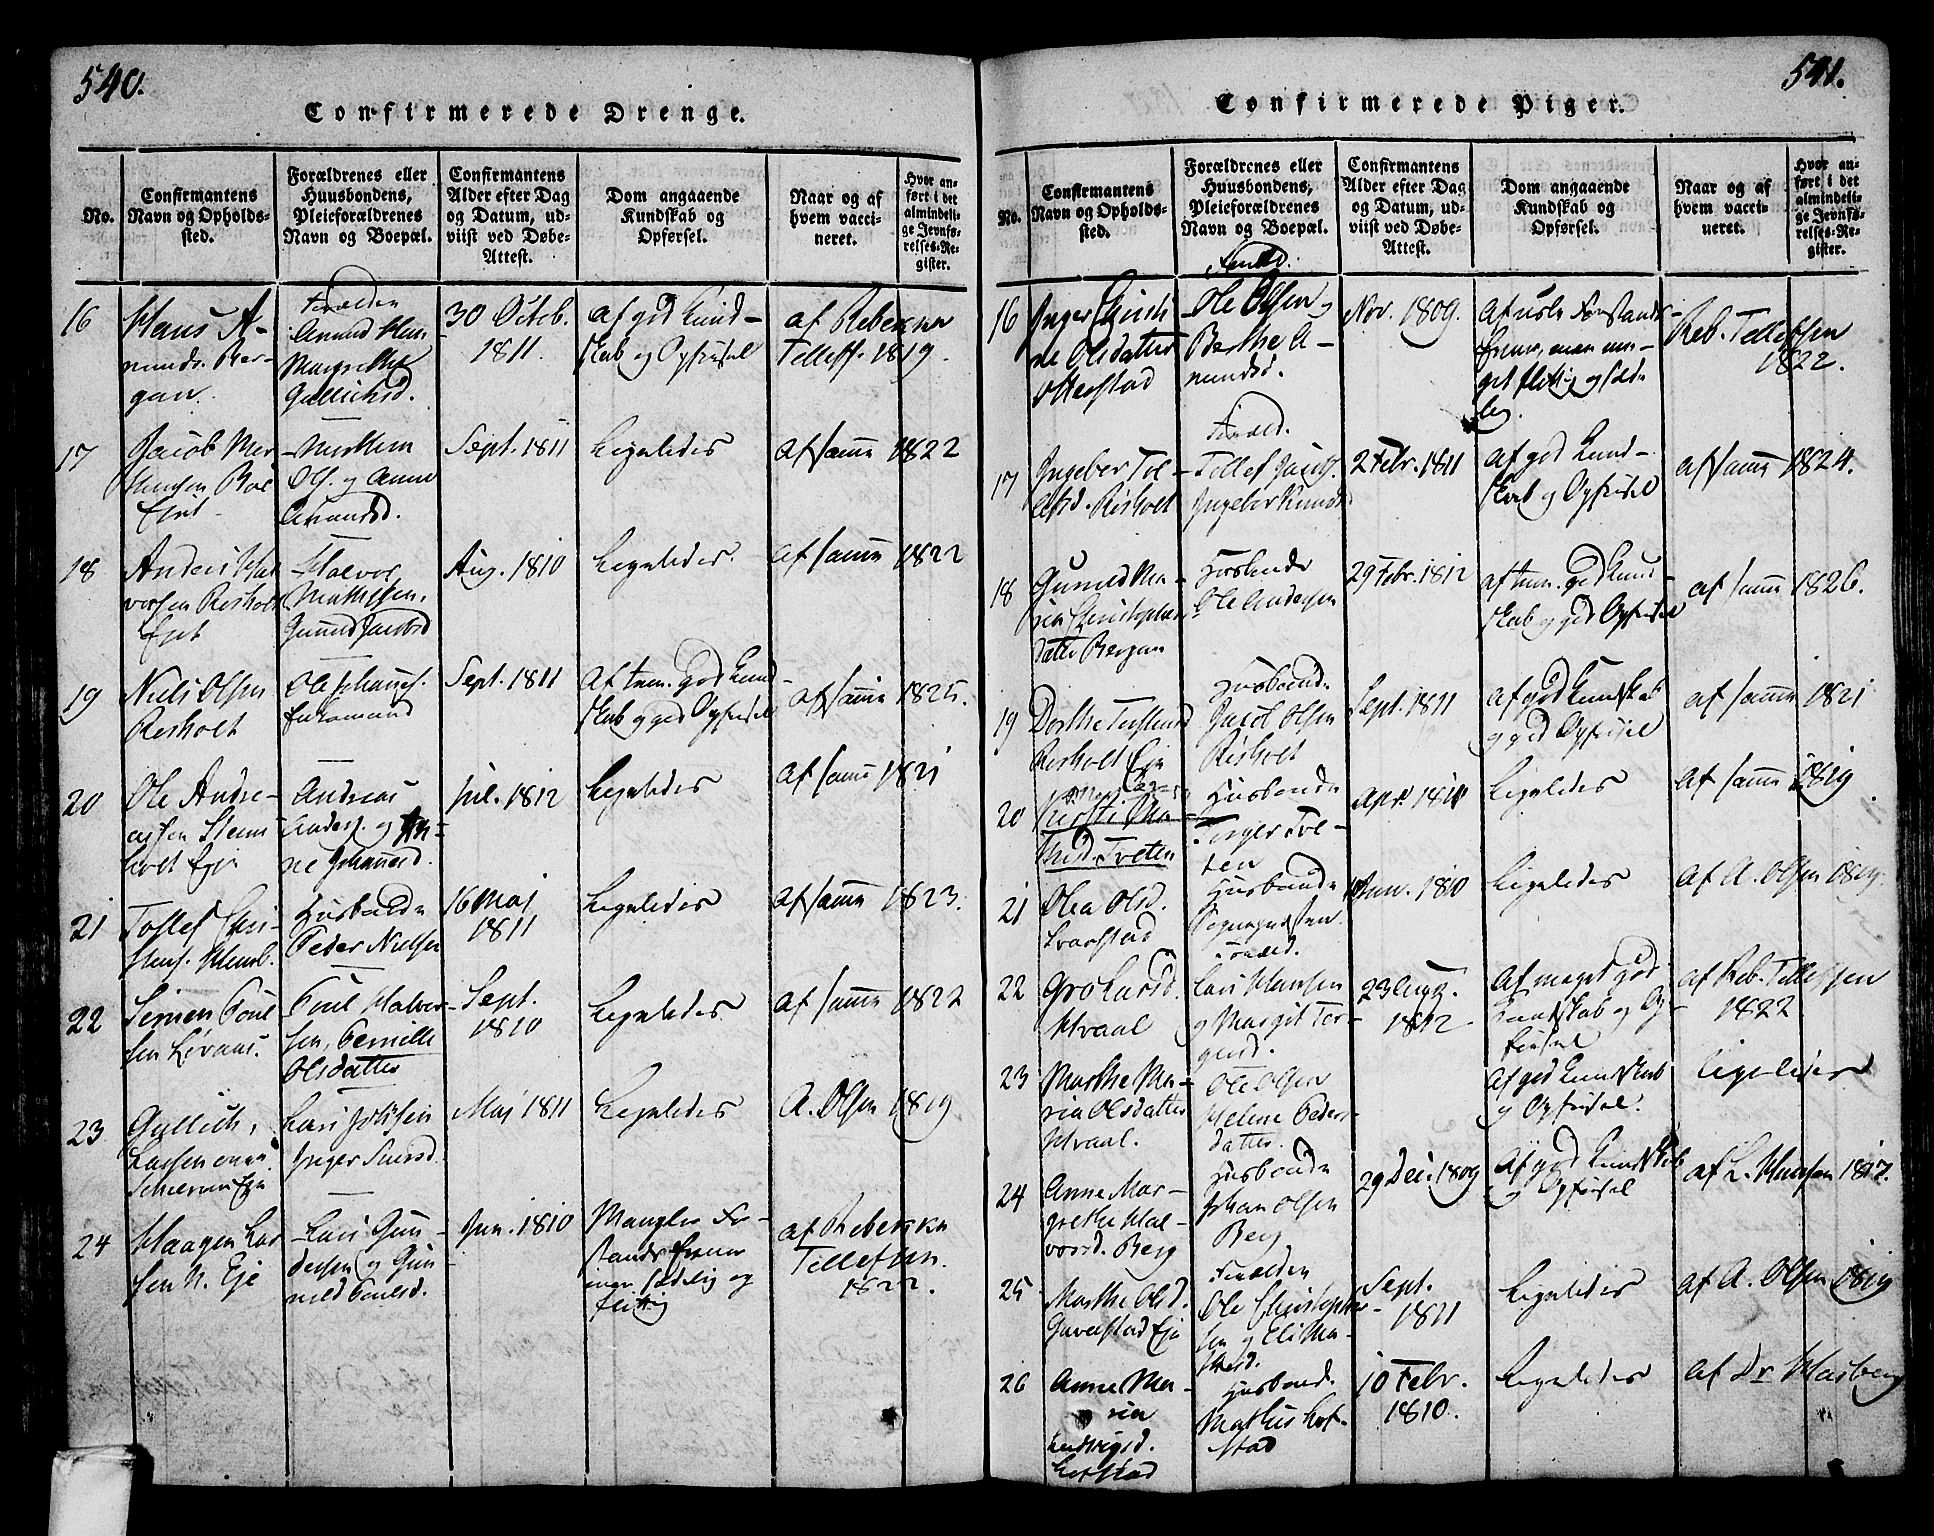 540.
Confirmerede Drenge.
No.
Confirmantens
Navn og Opholds-
sted.
Forældrenes eller
Huusbondens,
Pleieforældrenes
Navn og Boepæl.
Confirmantens
Alder efter Dag
og Datum, ud-
viist ved Døbe-
Attest.
Dom angaaende
Kundskab og
Opførsel.
Naar og af
hvem vacci-
neret.
Hvor an-
ført i det
almindeli-
ge Jevnfø-
relses-Re-
gister.
16
Hans A-
munds. Ber-
gan.
Forælden
Amund Han
Margrethe
Gullichsd.
30 Octob.
1811.
af god Kund-
skab og Opførsel
af Rebekka
Tellefs. 1819.
17
Jacob Mor-
tensen Roe
Ejet
Morthen
Ols. og Anne
Amundsd.
Sept. 1811
Ligeledes
af samme 1822
18
Anders Hal
vorsen Risholt
Ejet
Halvor
Mathisen,
Gunild Jacobsd
Aug. 1810
Ligeledes.
af samme 1822
19
Niels Olsen
Risholt
Ole Johannes.
Enkemand
Sept. 1811
Af tem. god Kund-
skab og god Opførsel
af samme 1825.
20
Ole Andre-
assen Steens-
holt Eje
Andreas
Anders. og An-
ne Johannesd.
Jul. 1812
Ligeledes
af samme 1821
21
Tollef Chri-
stens.
Husbonde
Peder Nielsen
16 Maj
1811
Ligeledes
af samme 1823.
22
Simen Poul
sen Livaas.
Poul Halvor-
sen, Pernille
Olsdatter
Sept.
1810
Ligeledes
af samme 1822
23
Gullich
Larsen
Eje
Lars
Inger
Maj 1811
Ligeledes
A. Olsen 1819
24
Haagen Lar
sen N. Eje
Lars Gun-
dersen og Gun-
nild Poulsd.
Jun. 1810
Mangler For-
stands Evner
men sædelig og
flittig
af Rebekka
Tellefsen.
1822.
541.
Confirmerede Piger.
No.
Confirmantens
Navn og Opholds-
sted.
Forældrenes eller
Huusbondens,
Pleieforældrenes
Navn og Boepæl.
Confirmantens
Alder efter Dag
og Datum, ud-
viist ved Døbe-
Attest.
Dom angaaende
Kundskab og
Opførsel.
Naar og af
hvem vacci-
neret.
Hvor an-
ført i det
almindeli-
ge Jevnfø-
relses-Re-
gister.
16
Inger Christi-
ne Olsdatter
Otterstad
Foræld.
Ole Olsen
Berthe A-
mundsd.
Nov. 1809.
Af usle Forstands-
Evner, men me-
get flittig og sæde-
lig.
Reb. Tellefsen
1822.
17
Ingebor Tol-
lefsd. Risholt
Foræld.
Tellef Jacobs.
Ingebor Knuds
2 Febr. 1811
af god Kund-
skab og Opførsel
af samme 1824.
18
Gunild Ma-
ria Christophers
datter Bergan
Husbonde
Ole Andersen
29 Febr. 1812
af tem. god Kund-
skab og god Opførsel
af samme 1826.
19
Dorthe
Risholt Eje
Husbond.
Jacob Olsen
Risholt
Sept. 1811
af god Kundskab
og god Opførsel
af samme 1821
20
Kirsti Ma-
thisd. Tveten
Husbonde
Torger Tve-
ten
Apr. 1811
Ligeledes
af samme 1819
21
Olea Olsd.
Tvarstad
Husbonde
Foræld.
Jun. 1810
Ligeledes
af A. Olsen 1819.
22
Gro Larsd.
Hvaal
Lars Hansen
og Margit Tor-
gersd.
23 Aug.
1812
Af meget god
Kundskab og Op-
førsel
af Reb. Tellefsen
1822
23
Marthe Ma-
ria Olsdatter
Hvaal.
Ole Olsen
Helene Peders
datter.
af god Kundskab
og Opførsel.
ligeledes
24
Anne Mar-
grethe Hal-
vorsd. Berg
Husbonde
Johan Olsen
Berg
29 Dec. 1809
Af god Kundskab
og Opførsel
af L. Hansen 1817.
25
Marthe Olsd.
Gaverstad Eje
Forælden
Ole Christopher-
sen og Eli Ma-
thisd.
Sept.
1811
Ligeledes
af A. Olsen 1819
26
Anne Ma-
ria
Ludvigsd.
Lofstad
Husbond.
Mathis Lof-
stad
10 Febr.
1810.
Ligeledes
af Dr Marberg